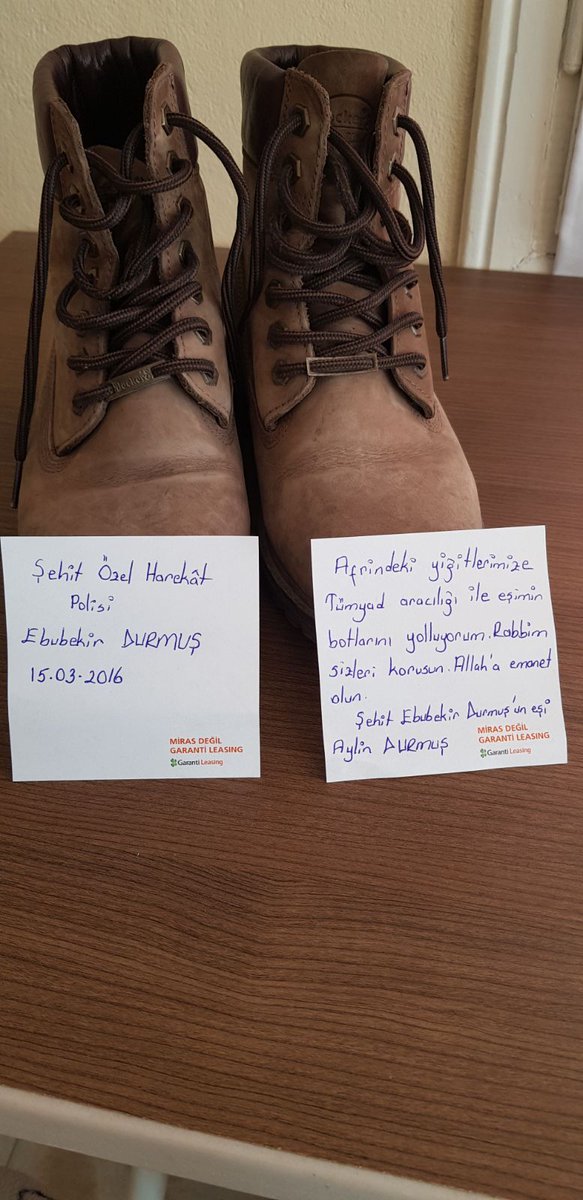 Şehit Özel Harekât
Polisi
Ebubekir DURMUŞ
15.03.2016
MİRAS DEĞİL
GARANTİ LEASING
Garanti Leasing
Afrindeki yiğitlerimize
Tümyad aracılığı ile eşimin
botlarını yolluyorum. Rabbim
sizleri korusun. Allah'a emanet
olun.
Şehit Ebubekir Durmuş'un eşi
Aylin DURMUŞ
MİRAS DEĞİL
GARANTİ LEASING
Garanti Leasing